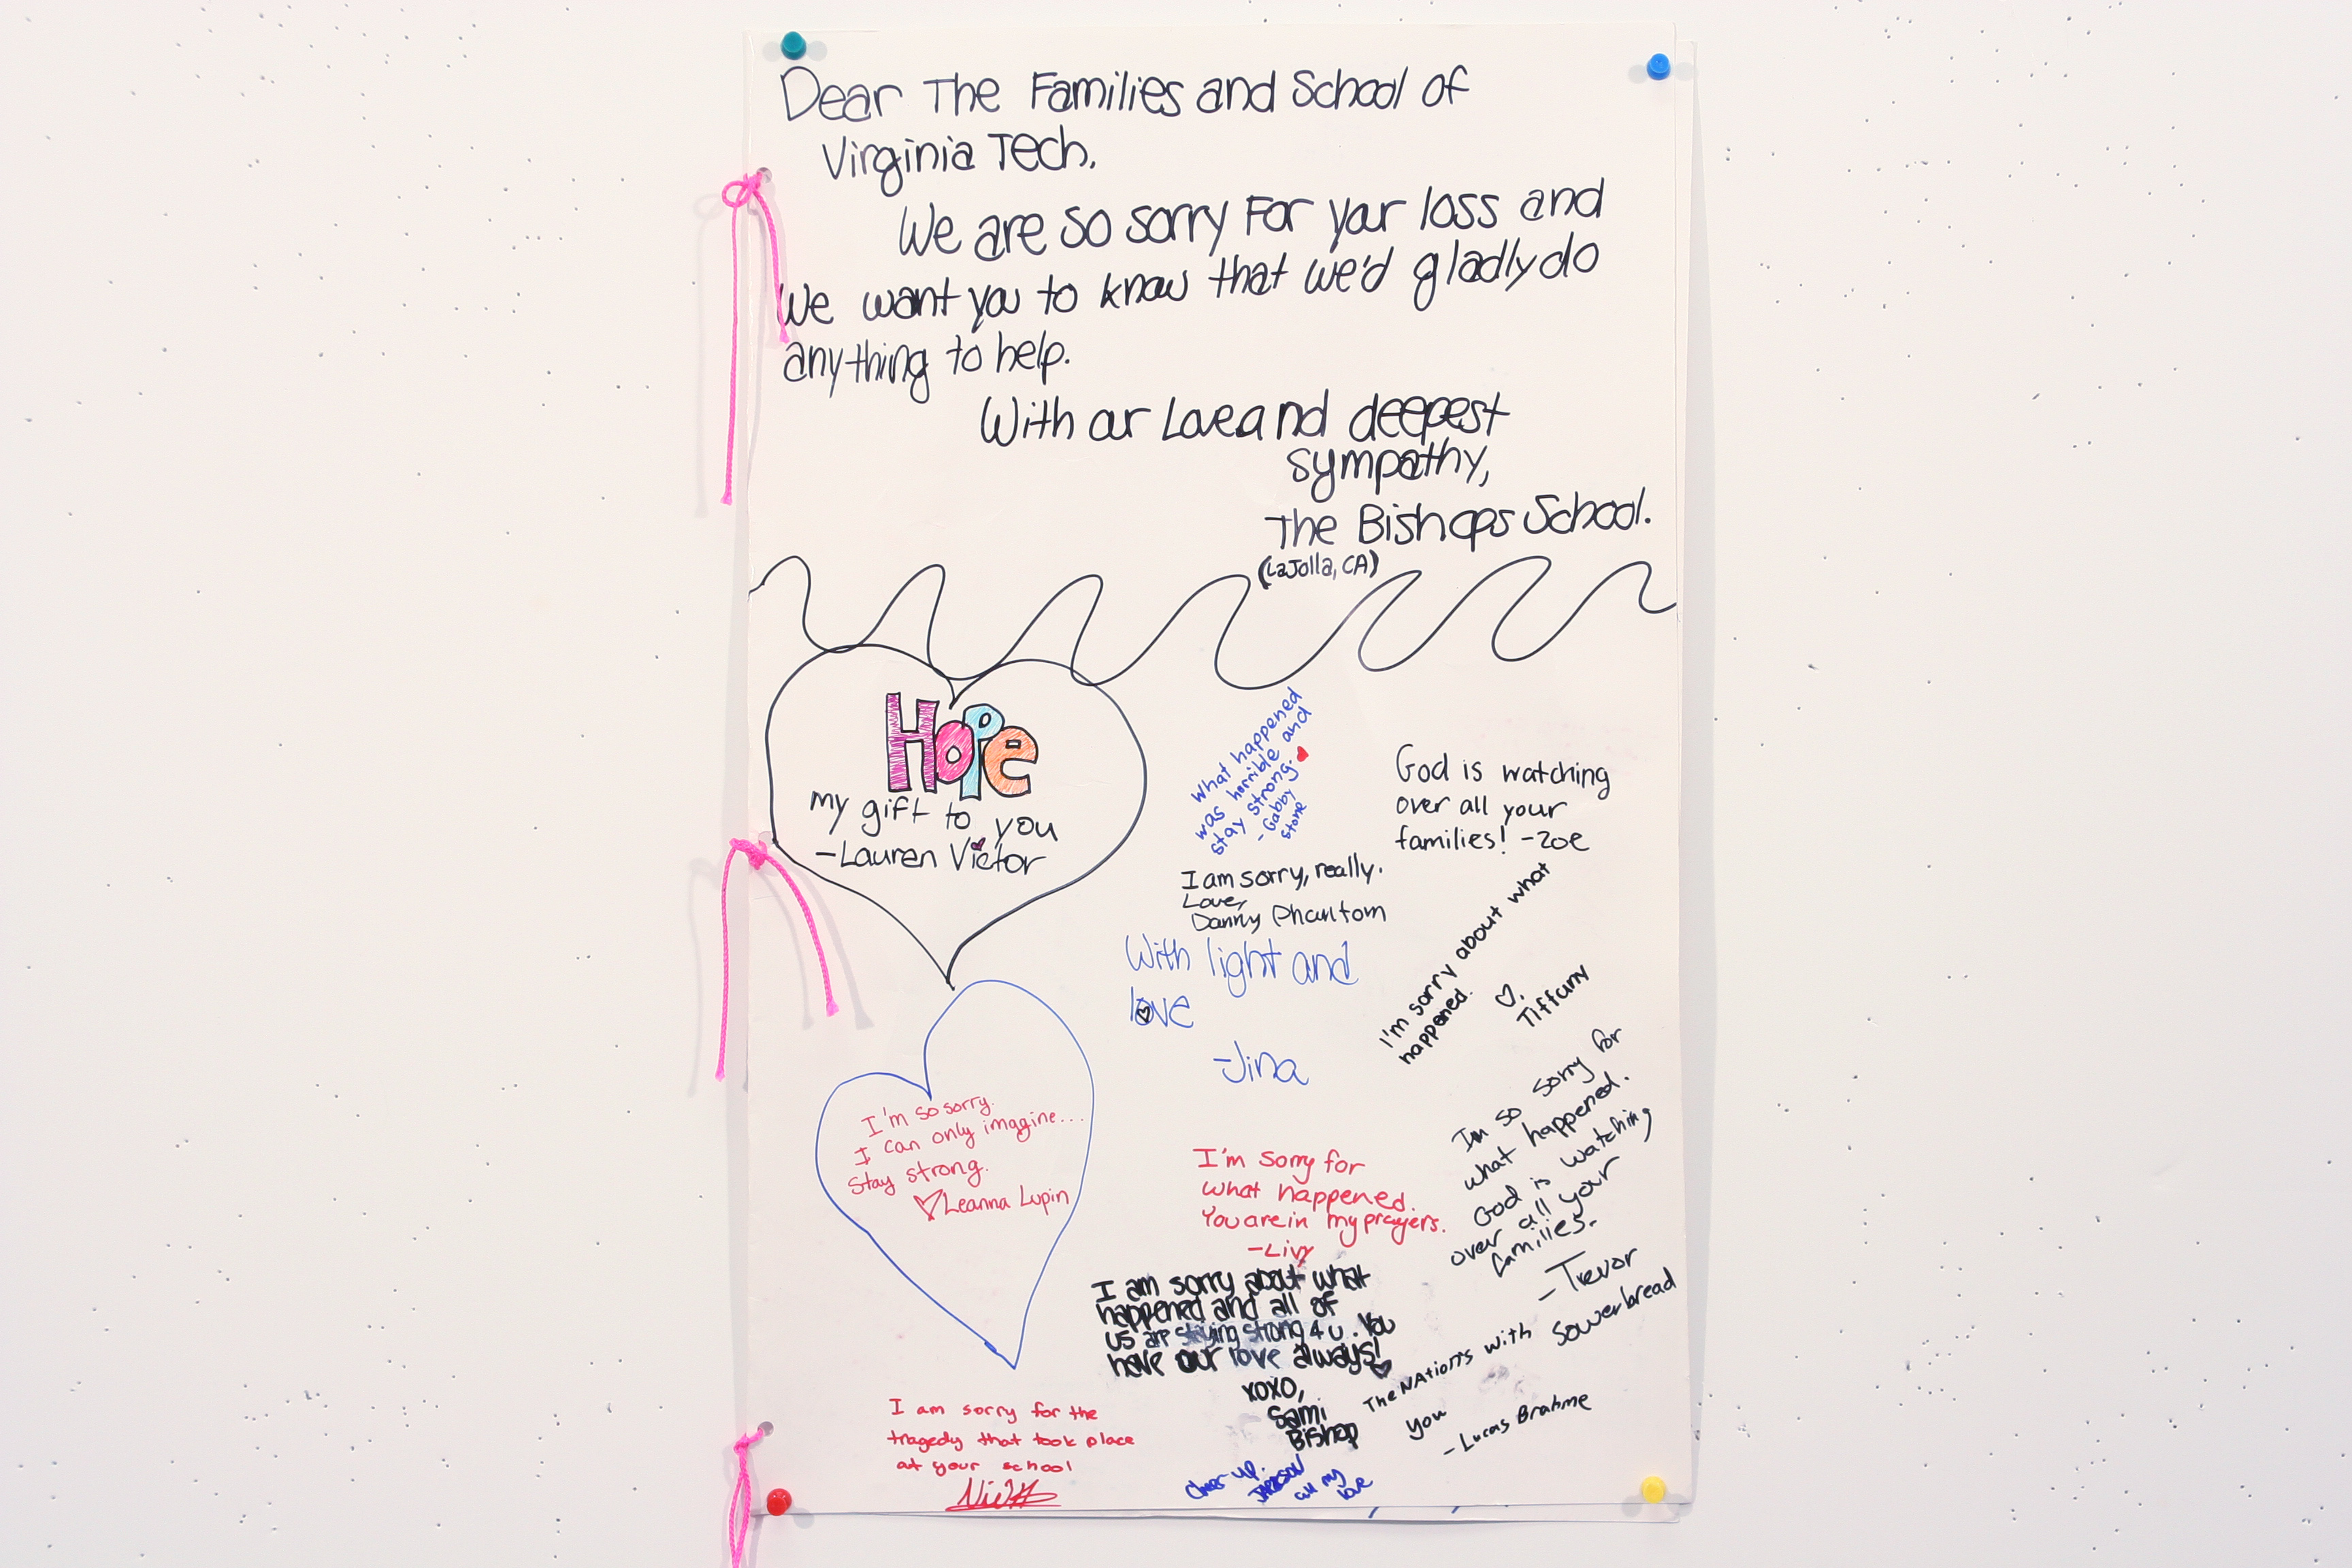 Dear The Families and School of
Virginia Tech.
We are so sorry For your loss and
we want you to know that we'd gladly do
anything to help.
With our Love and deepest
sympathy,
The Bishops School.
(LaJolla, CA)
Hope
my gift to you
-Lauren Victor
What happened
was horrible and
stay strong.
- Gabby
Stone
God is watching
over all your
families! -Zoe
I am sorry, really.
Love,
Danny Phantom
I'm sorry about what
happened.
Tiffany
With light and
love
-Jina
I'm so sorry.
I can only imagine...
Stay strong.
Leanna Lupin
I'm sorry for
what happened.
You are in my prayers.
-Livy
Im so sorry for
what happened.
God is watching
over all your
families.
- Trevor
Sowerbread
I am sorry about what
happened and all of
us are staying strong 4 u. You
have our love always!
xoxo,
Sami
Bishop
The NAtion's with
you
- Lucas Brahme
I am sorry for the
tragedy that took place
at your school
cheer up.
all my
love